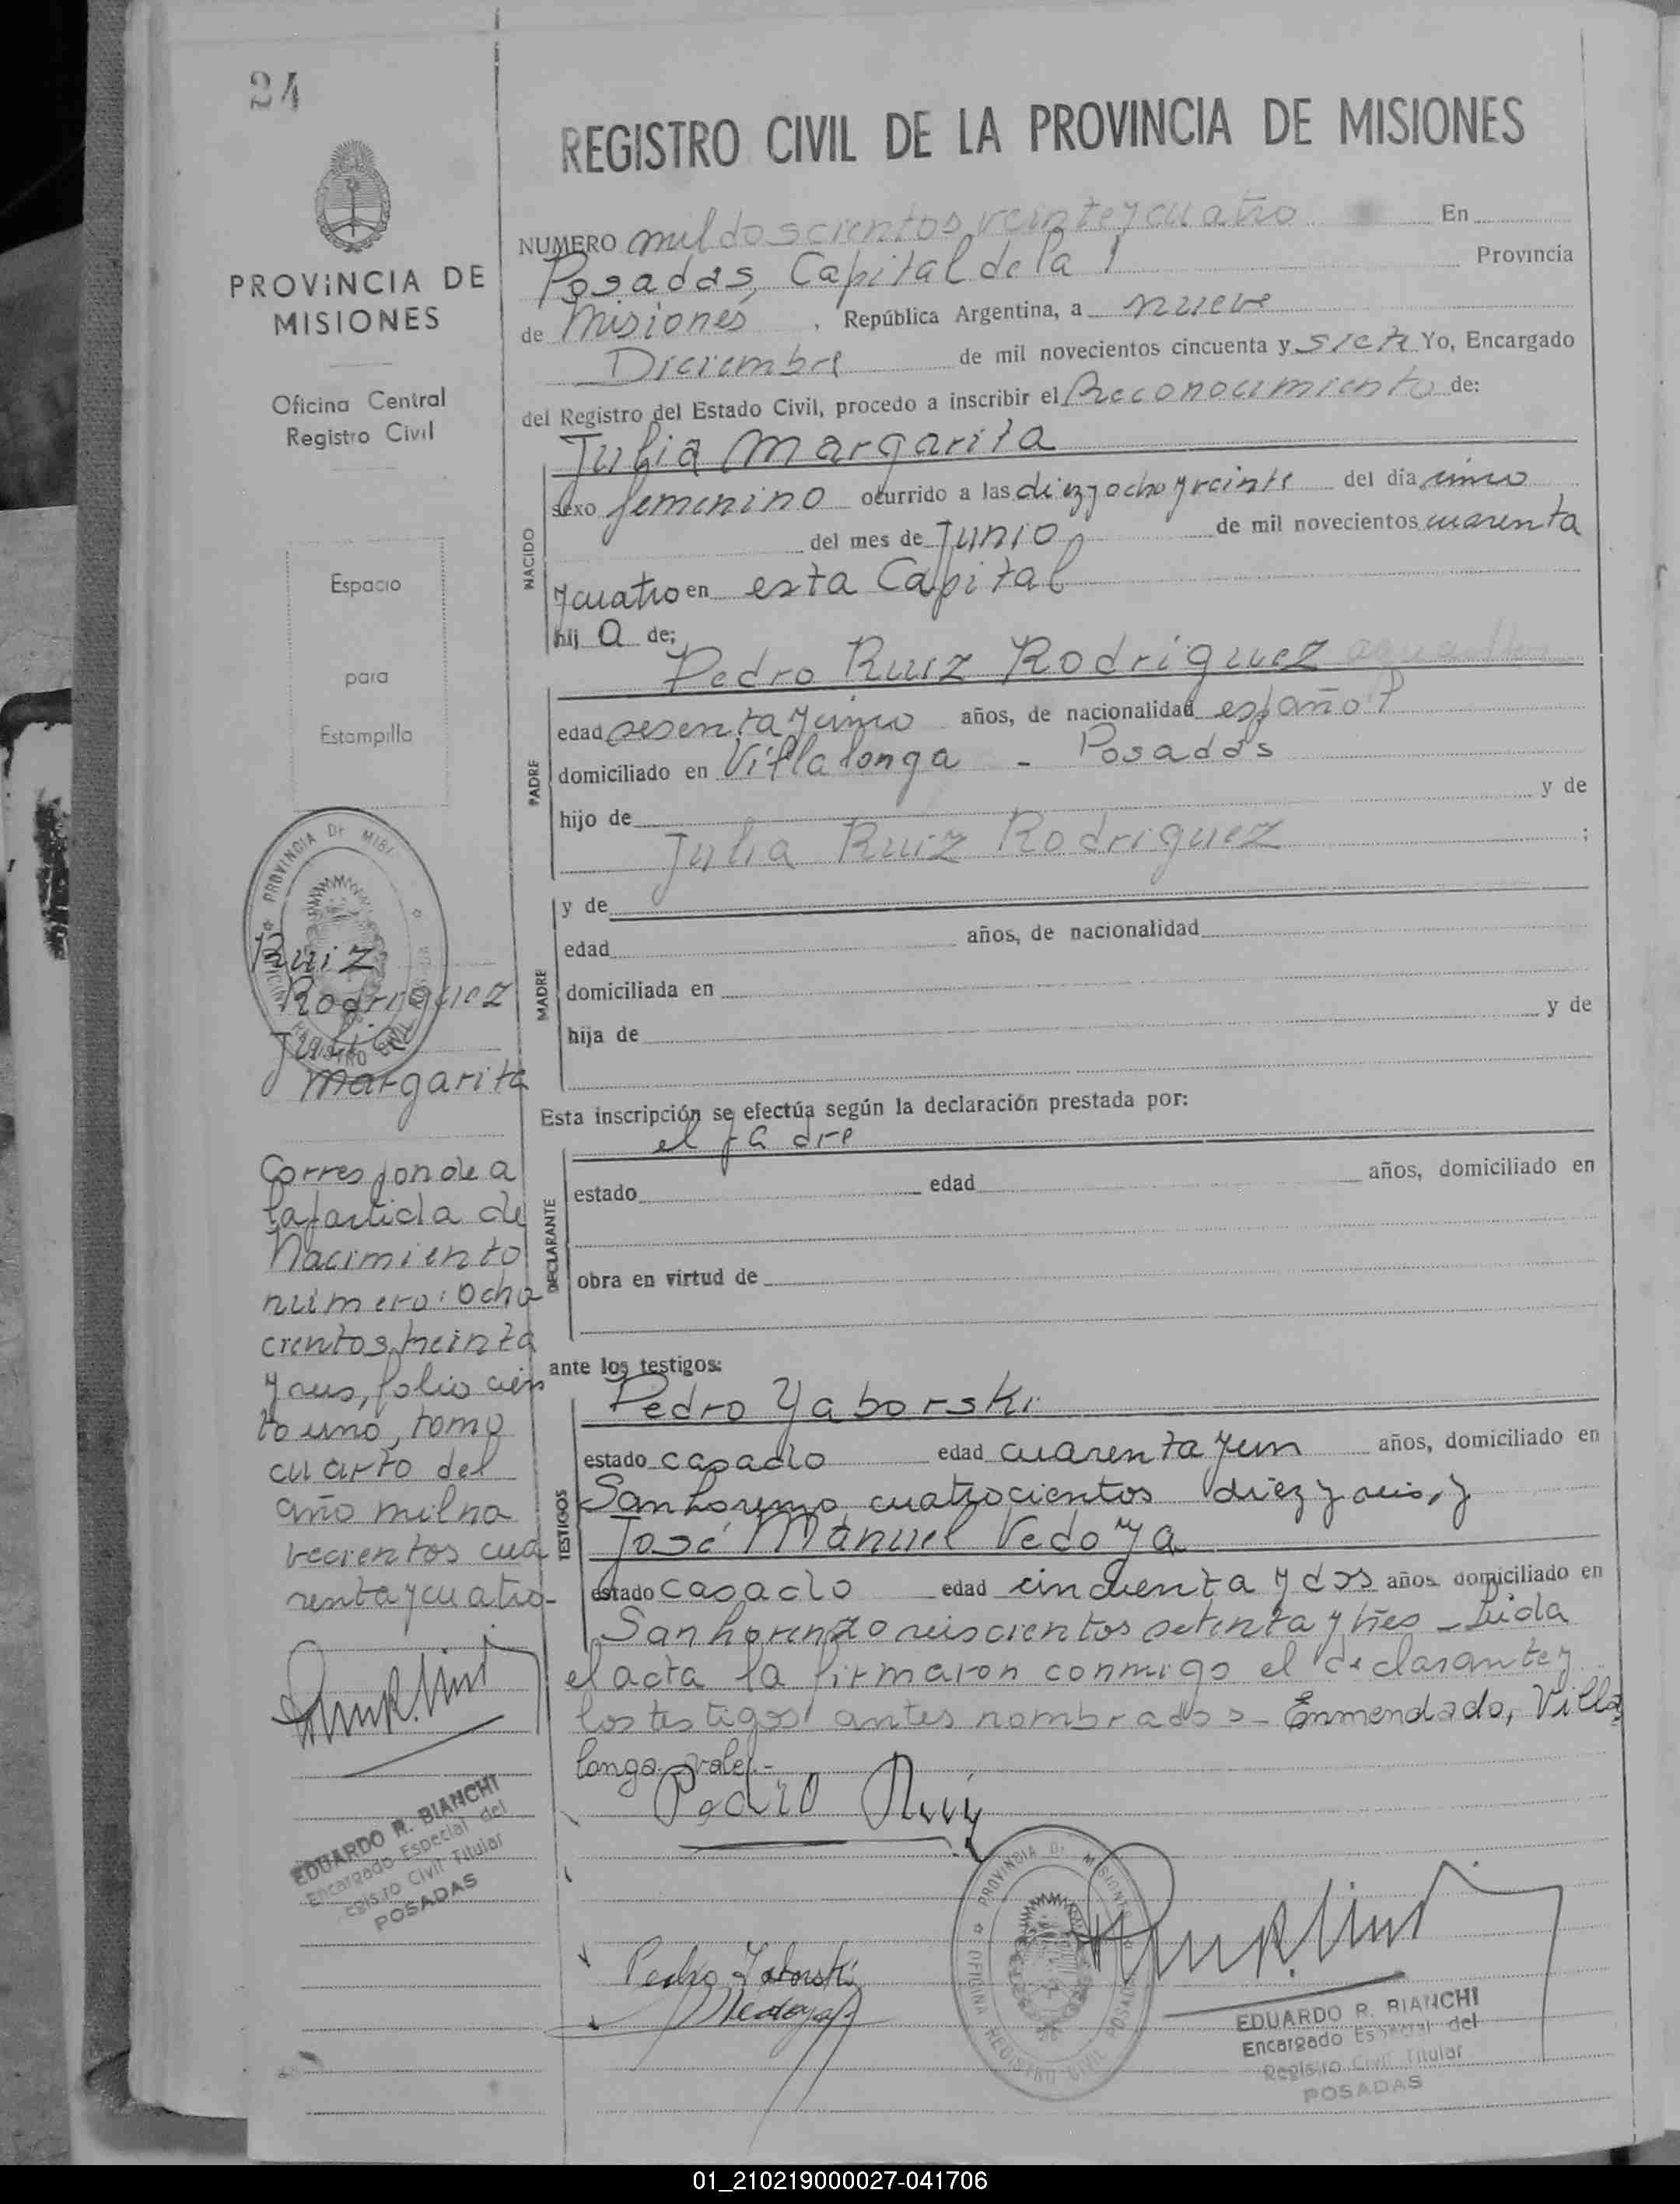 24
PROVINCIA DE
MISIONES
Oficina Central
Registro Civil
Espacio
para
Estampilla
Ruiz
Rodriguez
Julia
Margarita
Corresponde a
la partida de
Nacimiento
número: Ocho
cientos treinta
y seis, folio cien
to uno, tomo
cuarto del
año mil no
vecientos cua
renta y cuatro-
EDUARDO R. BIANCHI
Encargado Especial del
Registro Civil Titular
POSADAS
REGISTRO CIVIL DE LA PROVINCIA DE MISIONES
NUMERO mil doscientos veinte y cuatro En
Posadas, Capital de la Provincia
de Misiones, República Argentina, a nueve
Diciembre de mil novecientos cincuenta y siete Yo, Encargado
del Registro del Estado Civil, procedo a inscribir el Reconocimiento de:
Julia Margarita
NACIDO
sexo femenino ocurrido a las diez y ocho y veinte del día cinco
del mes de Junio de mil novecientos cuarenta
y cuatro en esta Capital
hij a de;
Pedro Ruiz Rodriguez
PADRE
edad sesenta y cinco años, de nacionalidad español
domiciliado en Villalonga - Posadas
hijo de y de
Julia Ruiz Rodriguez ;
MADRE
y de
edad años, de nacionalidad
domiciliada en
hija de y de
Esta inscripción se efectúa según la declaración prestada por:
el padre
DECLARANTE
estado edad años, domiciliado en
obra en virtud de
ante los testigos:
Pedro Yaborski
TESTIGOS
estado casado edad cuarenta y un años, domiciliado en
San Lorenzo cuatrocientos diez y seis, y
José Manuel Vedoya
estado casado edad cincuenta y dos años domiciliado en
San Lorenzo seiscientos setenta y tres - Leida
el acta la firmaron conmigo el declarante y
los testigos antes nombrados - Enmendado, Villa
longa, vale.-
Pedro Ruiz
Pedro Yaborski
Vedoya
PROVINCIA DE MISIONES
OFICINA REGISTRO CIVIL POSADAS
EDUARDO R. BIANCHI
Encargado Especial del
Registro Civil Titular
POSADAS
01_210219000027-041706